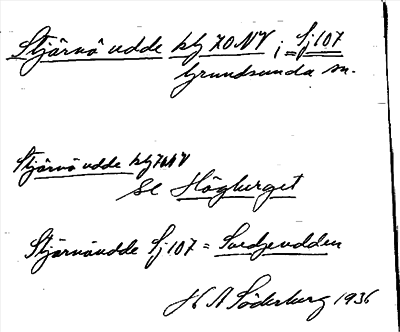 Stjärnö udde kbl 70 NV ; = Sj 107
Grundsunda sn.
Stjärnö udde kbl 70 NV
se Högberget
Stjärnöudde Sj 107 = Svedjeudden
H A Söderberg 1936